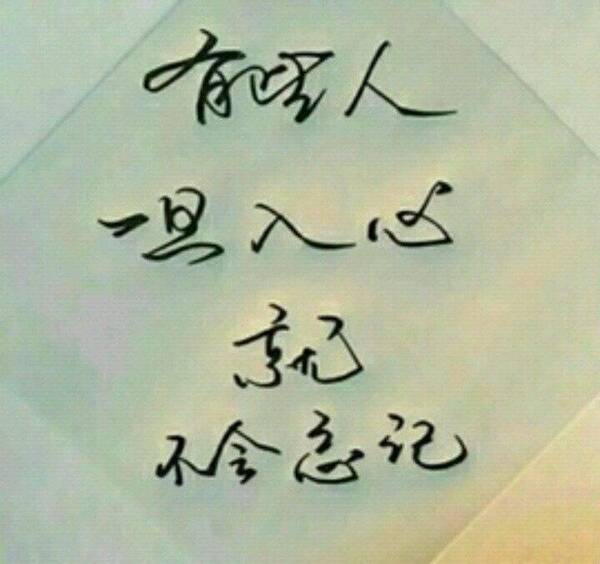 有些人
一旦入心
就
不会忘记